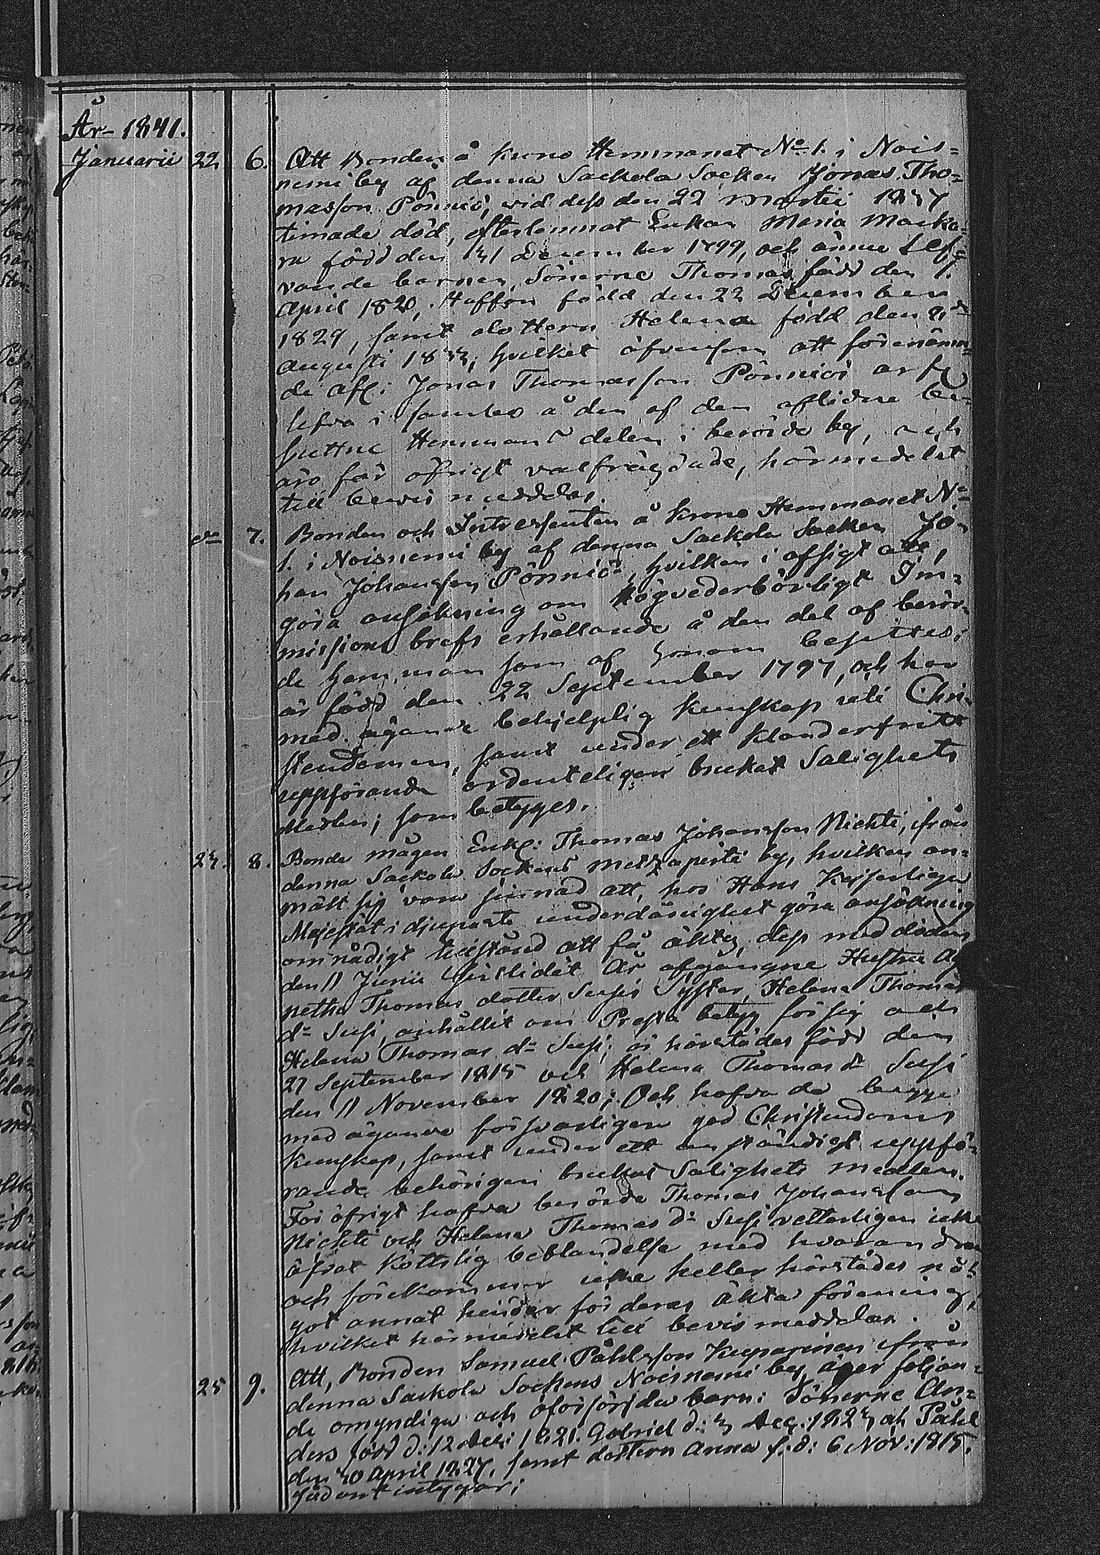 År 1841.
Januarii 22. 6. Att Bonden å Krono Hemmanet No 1. i Nois-
niemi by af denna Sackola Socken Jonas Tho-
masson Pönniö, vid dess den 22 Martii 1837
timade död, efterlemnat Enkan Maria Marka-
 född den 31 December 1799, och ännu lef-
vande barnen, Sönerne Thomas född den 1.
April 1820, Staffan född den 22 December
1829, samt dottern Helena född den
Augusti 1833; hvilket äfvensom att förenämn-
de afl: Jonas Thomasson Pönniös arf
lefva i samlas å den af den aflidne be-
suttne Hemmans delen i berörde by, och
äro för öfrigt välfrägdade, härmedelst
till bevis meddelas.
d:o 7. Bonden och Intressenten å Krono Hemmanet No
1. i Noisniemi by af denna Sackola Socken Jo-
han Johansson Pönniö, hvilken i afsigt att,
göra ansökning om Högvederbörligt Im-
missions brefs erhållande å den del af berör-
de Hemman som af honom besittes;
är född den 22 September 1797, och har
med ägande behjelplig kunskap uti Chri-
stendomen, samt under ett klanderfritt
uppförande ordenteligen brukat Salighets
Medlen; som betyges.
23. 8. Bonde mågen Enkl: Thomas Johansson Nickti, ifrån
denna Sackola Sockens Metzäpirti by, hvilken an-
mält sig vara sinnad att, hos Hans Kejserliga
Majestät i djupaste underdånighet göra ansökning
om nådigt tillstånd att få äkta, dess med döden
den 11 Junii sistlidit År afgångne Hustru Ag-
netha Thomas dotter Susis Syster Helena Thomas
d:r Susi, anhållit om Presta betyg för sig och
Helena Thomas d:r Susi, är härstädes född den
27 September 1815 och Helena Thomas d:r Susi
den 11 November 1820; Och hafva de begge
med ägande försvarligen god Christendoms
kunskap, samt under ett anständigt uppfö-
rande behörigen brukat Salighets medlen.
För öfrigt hafva berörde Thomas Johansson
Nickti och Helena Thomas d:r Susi vetterligen icke
öfvat köttslig beblandelse med hvarandra
och förekommer icke heller härstädes nå-
got annat hinder för deras äkta förening,
hvilket härmedelst till bevis meddelas.
25 9. Att, Bonden Samuel Påhlsson Kuparinen ifrån
denna Sackola Sockens Noisniemi by, äger följan-
de omyndiga och oförsörjda barn: Sönerne An-
ders född d: 12 Dec: 1821. Gabriel d: 3 Dec: 1823 och Påhl
den 30 April 1827, samt dottern Anna f: d: 6 Nov: 1815,
sådant intygar;